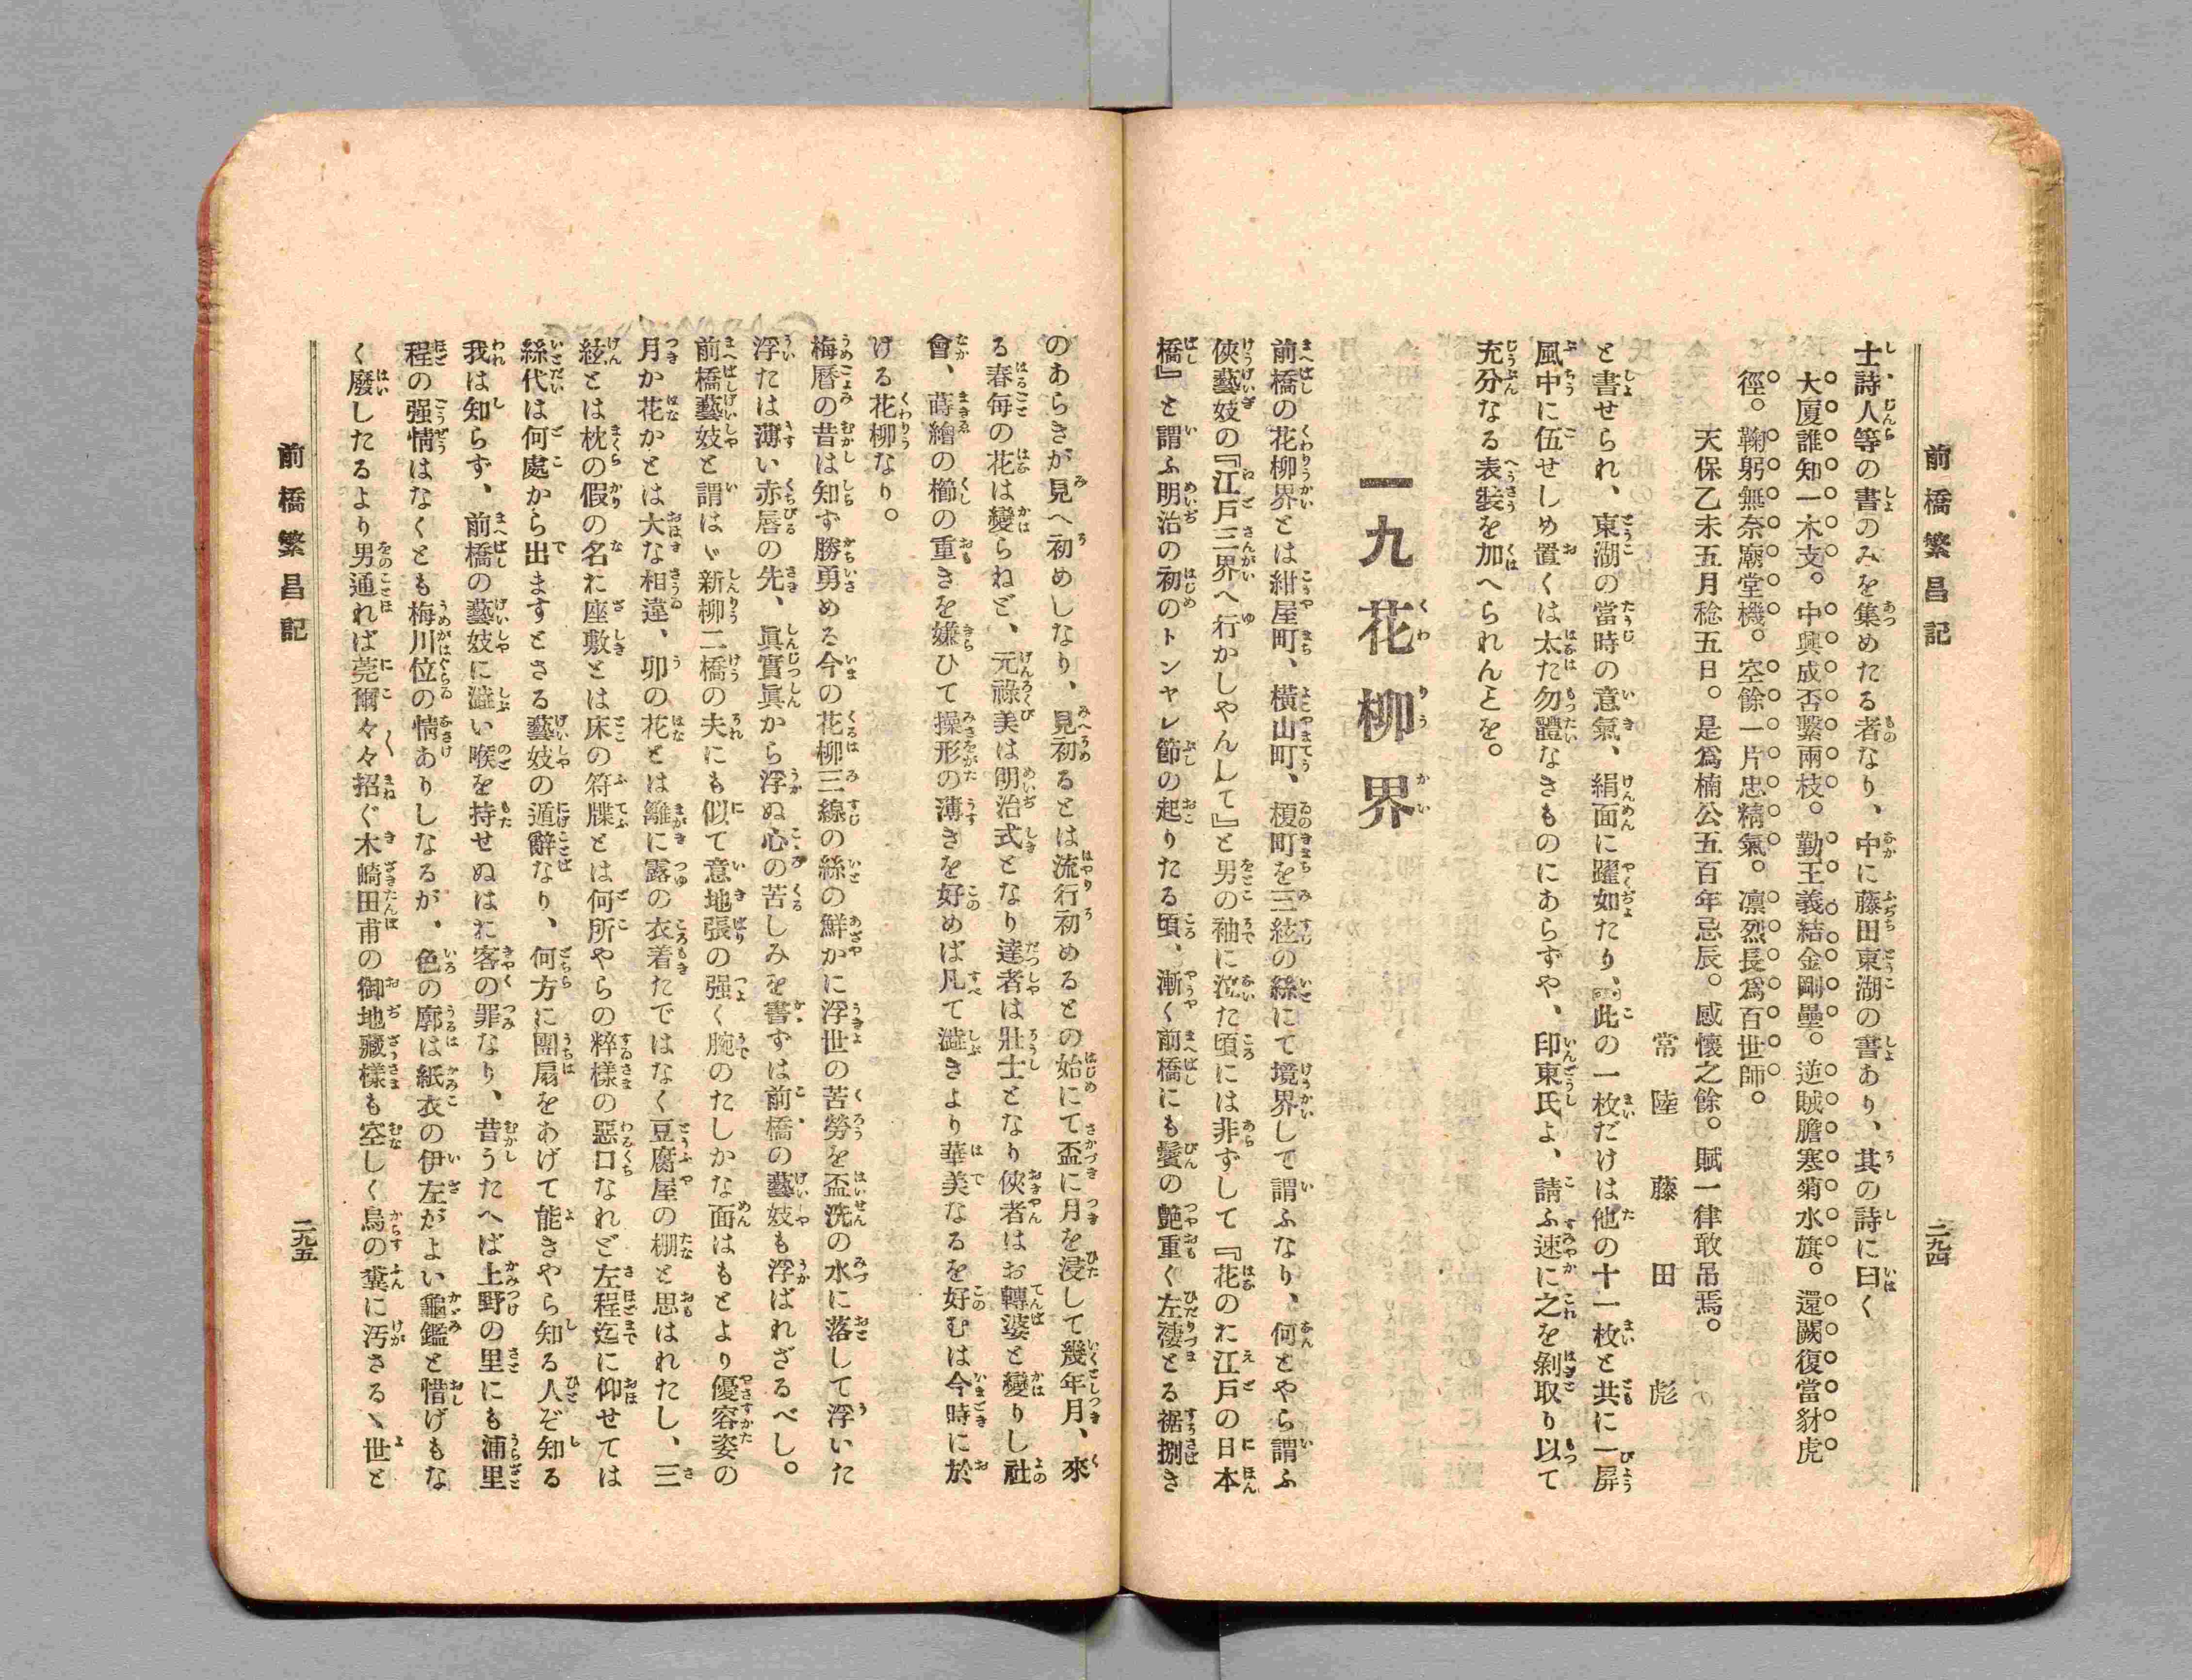 前橋繁昌記
二九四
士詩人等の書のみを集めたる者なり、中に藤田東湖の書あり、其の詩に曰く
大厦誰知一木支。中興成否繫兩枝。勤王義結金剛壘。逆賊膽寒菊水旗。還闕復當豺虎
徑。鞠躬無奈廟堂機。空餘一片忠精氣。凛烈長爲百世師。
天保乙未五月稔五日。是爲楠公五百年忌辰。感懷之餘。賦一律敢吊焉。
常陸 藤田彪
と書せられ、東湖の當時の意氣、絹面に躍如たり、此の一枚だけは他の十一枚と共に一屏
風中に伍せしめ置くは太た勿體なきものにあらずや、印東氏よ、請ふ速に之を剝取り以て
充分なる表裝を加へられんことを。
一九花柳界
前橋の花柳界とは紺屋町、横山町、榎町を三絃の絲にて境界して謂ふなり、何とやら謂ふ
俠藝妓の『江戸三界へ行かしやんして』と男の袖に泣た頃には非ずして『花のお江戸の日本
橋』と謂ふ明治の初のトンヤレ節の起りたる頃、漸く前橋にも鬢の艶重く左褄とる裾捌き
のあらきが見へ初めしなり、見初るとは流行初めるとの始にて盃に月を浸して幾年月、來
る春每の花は變らねど、元祿美は明治式となり達者は壯士となり俠者はお轉婆と變りし社
會、蒔繪の櫛の重きを嫌ひて操形の薄きを好めば凡て澁きより華美なるを好むは今時に於
ける花柳なり。
梅曆の昔は知ず勝勇める今の花柳三線の絲の鮮かに浮世の苦勞を盃洗の水に落して浮いた
浮いたは薄い赤唇の先、眞實眞から浮ぬ心の苦しみを書ずは前橋の藝妓も浮ばれざるべし。
前橋藝妓と謂はゞ新柳二橋の夫にも似て意地張の强く腕のたしかな面はもとより優容姿の
月か花かとは大な相違、卯の花とは籬に露の衣着たではなく豆腐屋の棚と思はれたし、三
絃とは枕の假の名お座敷とは床の符牒とは何所やらの粹樣の惡口なれど左程迄に仰せては
絲代は何處から出ますとさる藝妓の遁辭なり、何方に團扇をあげて能きやら知る人ぞ知る
我は知らず、前橋の藝妓に澁い喉を持せぬはお客の罪なり、昔うたへば上野の里にも浦里
程の强情はなくとも梅川位の情ありしなるが、色の廓は紙衣の伊左がよい龜鑑と惜げもな
く廢したるより男通れば莞爾々々招ぐ木崎田甫の御地藏樣も空しく鳥の糞に汚さるゝ世と
前橋繁昌記
二九五